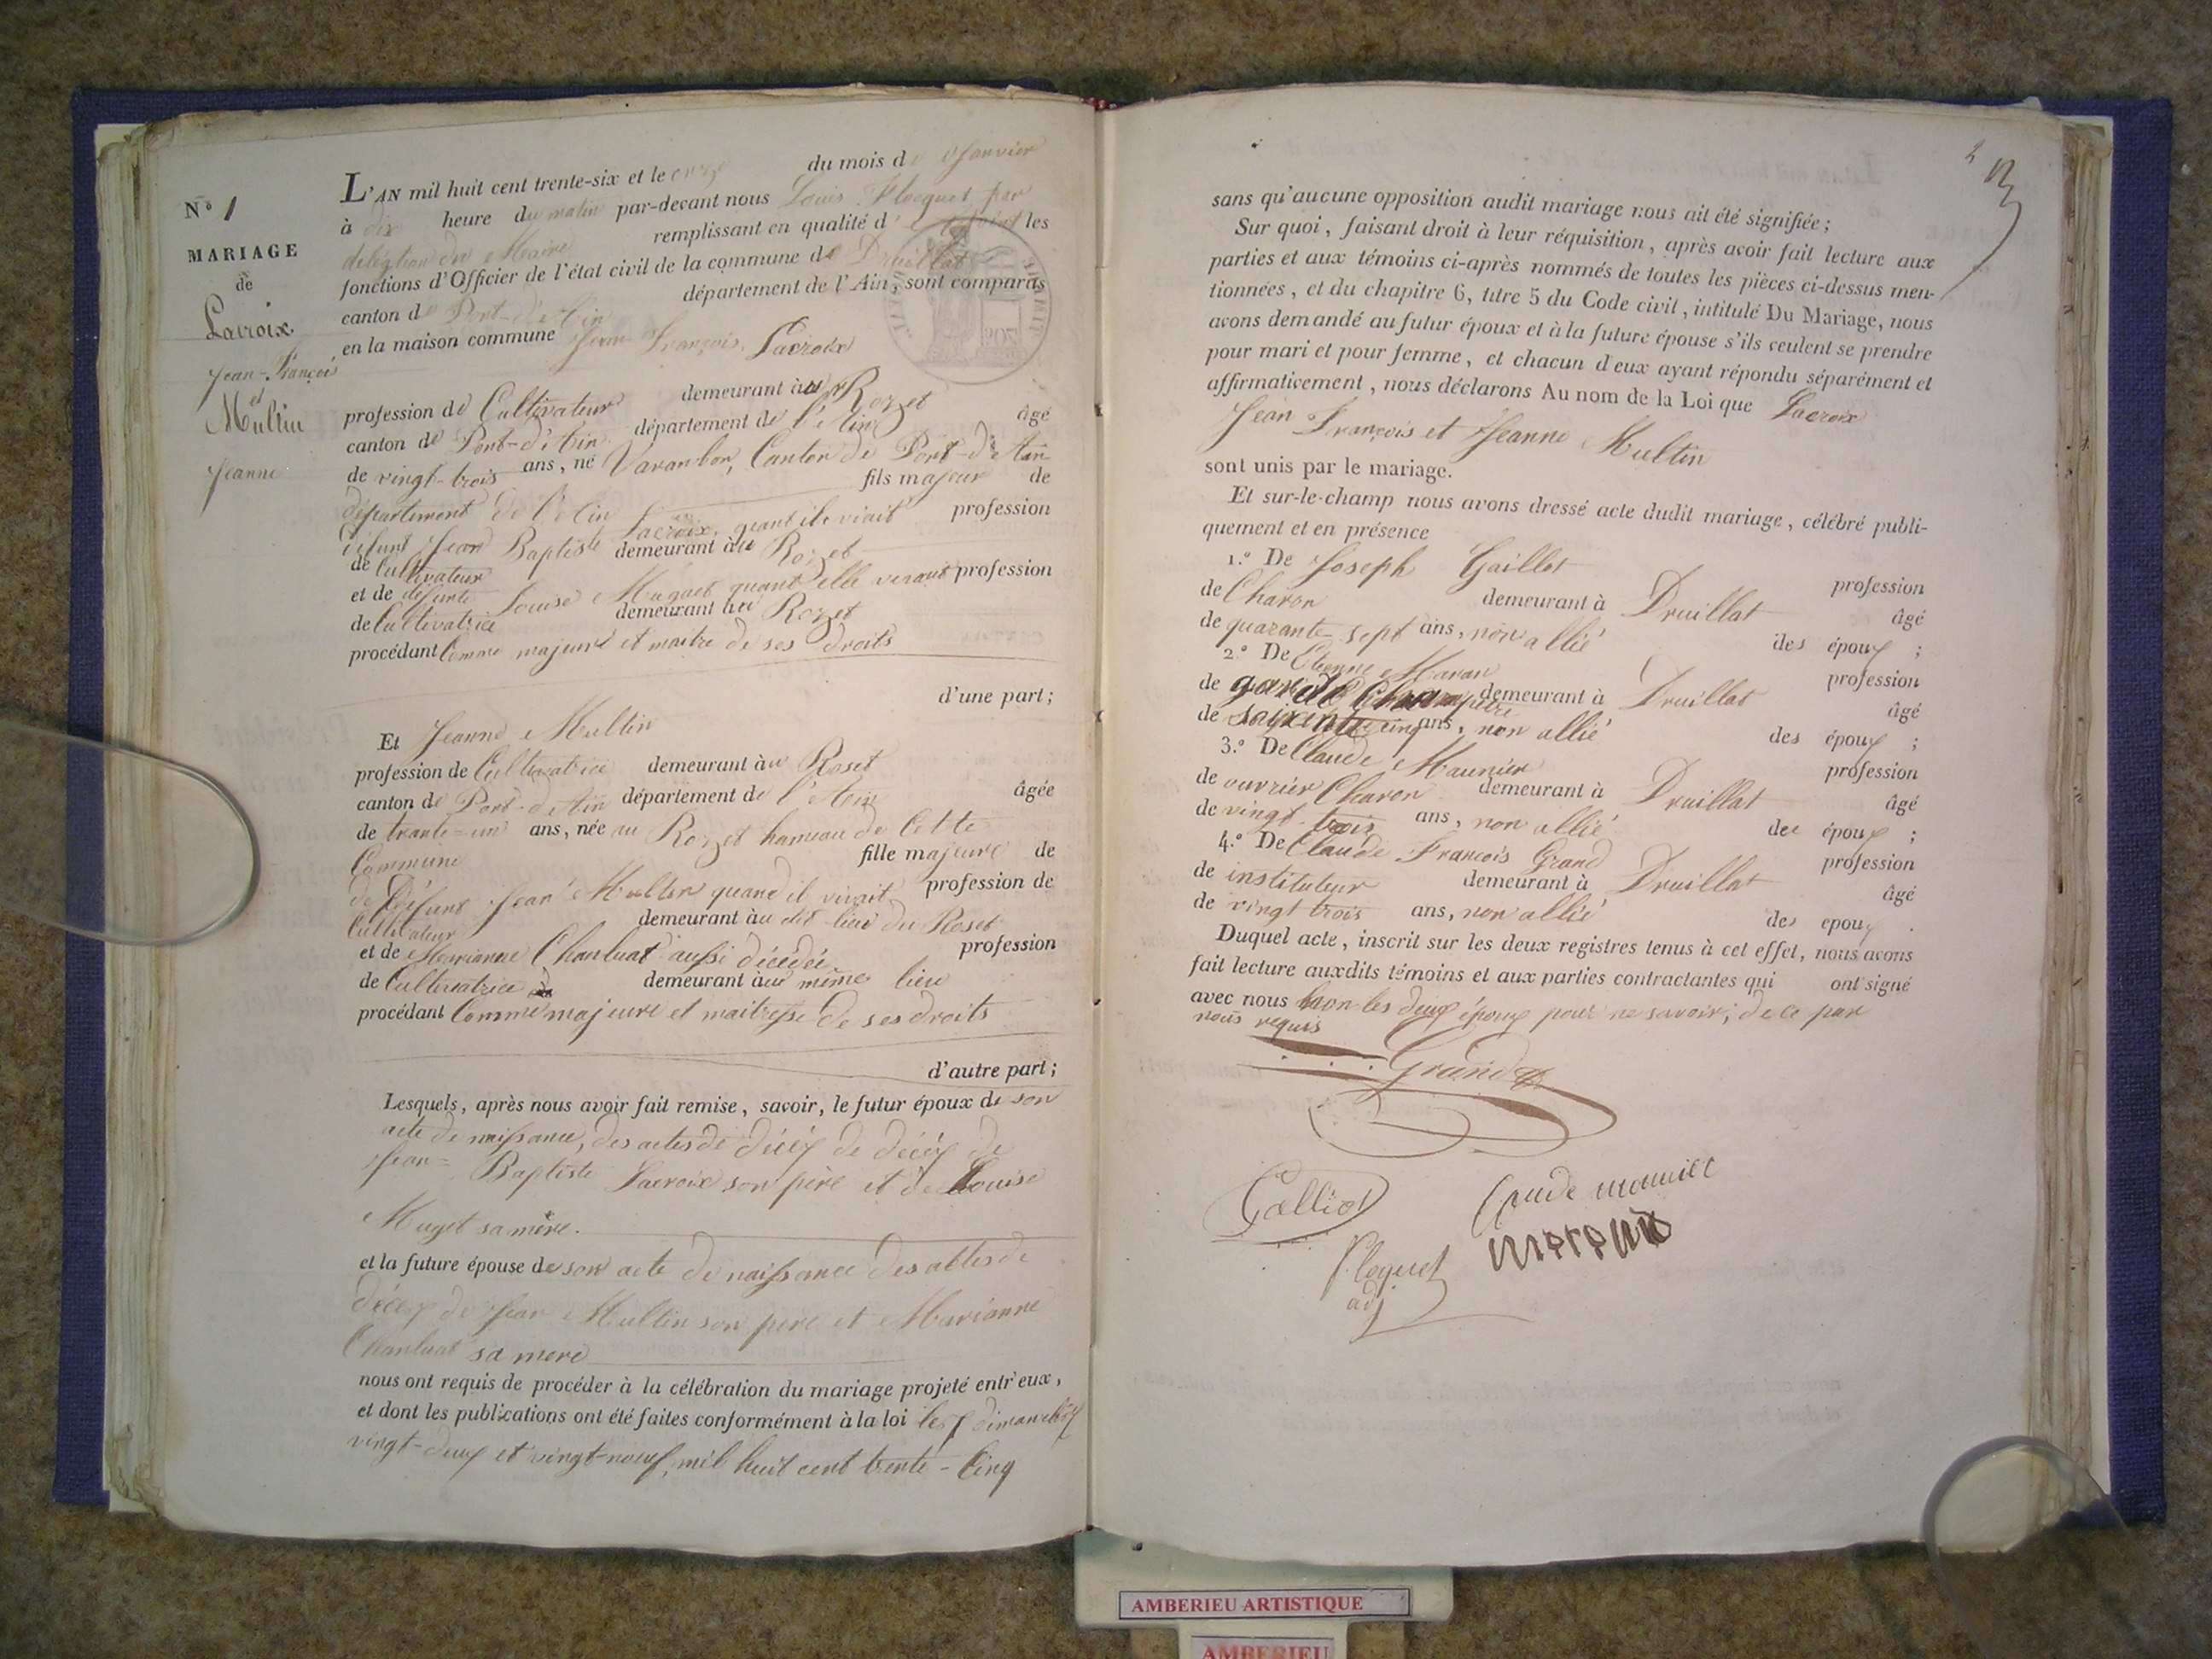 N.º 1
MARIAGE
de
Lacroix
Jean-François
et
Multin
Jeanne
L'AN mil huit cent trente-six et le onze du mois de Janvier
à dix heure du matin par-devant nous Louis Ploquet par
délégation du Maire remplissant en qualité d' adjoint les
fonctions d'Officier de l'état civil de la commune de Druillat
canton de Pont-d'Ain département de l'Ain, sont comparus
en la maison commune Jean François Lacroix
profession de Cultivateur demeurant au Rozet
canton de Pont-d'Ain département de l'Ain âgé
de vingt-trois ans, né Varanbon, Canton de Pont-d'Ain
département de l'Ain fils majeur de
défunt Jean Baptiste Lacroix, quant il viviait profession
de Cultivateur demeurant au Rozet
et de défunte Louise Muguet quant elle vivant profession
de Cultivatrice demeurant au Rozet
procédant Comme majeure et maitre de ses Droits
d'une part;
Et Jeanne Multin
profession de Cultivatrice demeurant au Roset
canton de Pont-d'Ain département de l'Ain âgée
de trante-un ans, née au Rozet hameau de Cette
Commune fille majeure de
de Défunt Jean Multin quand il vivait profession de
Cultivateur demeurant au dit lieu du Roset
et de Marianne Chanluat aussi décédée profession
de Cultivatrice demeurant au même lieu
procédant Comme majeure et maitresse de ses droits
d'autre part;
Lesquels, après nous avoir fait remise, savoir, le futur époux de son
acte de naissance, des actes de décéx de décéx de
Jean-Baptiste Lacroix son père et de Louise
Muget sa mère.
et la future épouse de son acte de naissance des actes de
décéx de Jean Multin son père et Marianne
Chanluat sa mere
nous ont requis de procéder à la célébration du mariage projeté entr'eux,
et dont les publications ont été faites conformément à la loi les dimanches
vingt-deux et vingt-neuf, mil huit cent trente-Cinq
sans qu'aucune opposition audit mariage nous ait été signifiée;
Sur quoi, faisant droit à leur réquisition, après avoir fait lecture aux
parties et aux témoins ci-après nommés de toutes les pièces ci-dessus men-
tionnées, et du chapitre 6, titre 5 du Code civil, intitulé Du Mariage, nous
avons demandé au futur époux et à la future épouse s'ils veulent se prendre
pour mari et pour femme, et chacun d'eux ayant répondu séparément et
affirmativement, nous déclarons Au nom de la Loi que Lacroix
Jean François et Jeanne Multin
sont unis par le mariage.
Et sur-le-champ nous avons dressé acte dudit mariage, célébré publi-
quement et en présence
1.º De Joseph Gaillot profession
de Charon demeurant à Druillat âgé
de quarante-sept ans, non allié des époux ;
2.º De Etienne Maran profession
de garde Champetre demeurant à Druillat âgé
de soixente cinq ans, non allié des époux ;
3.º De Claude Maunier profession
de ouvrier Charon demeurant à Druillat âgé
de vingt-trois ans, non allié des époux ;
4.º De Claude François Grand profession
de instituteur demeurant à Druillat âgé
de vingt trois ans, non allié des epoux .
Duquel acte, inscrit sur les deux registres tenus à cet effet, nous avons
fait lecture auxdits témoins et aux parties contractantes qui ont signé
avec nous non les deux époux pour ne savoir, de ce par
nous requis
Grand
Galliot
Claude
Ploquet
adj
AMBERIEU ARTISTIQUE
AMBERIEU